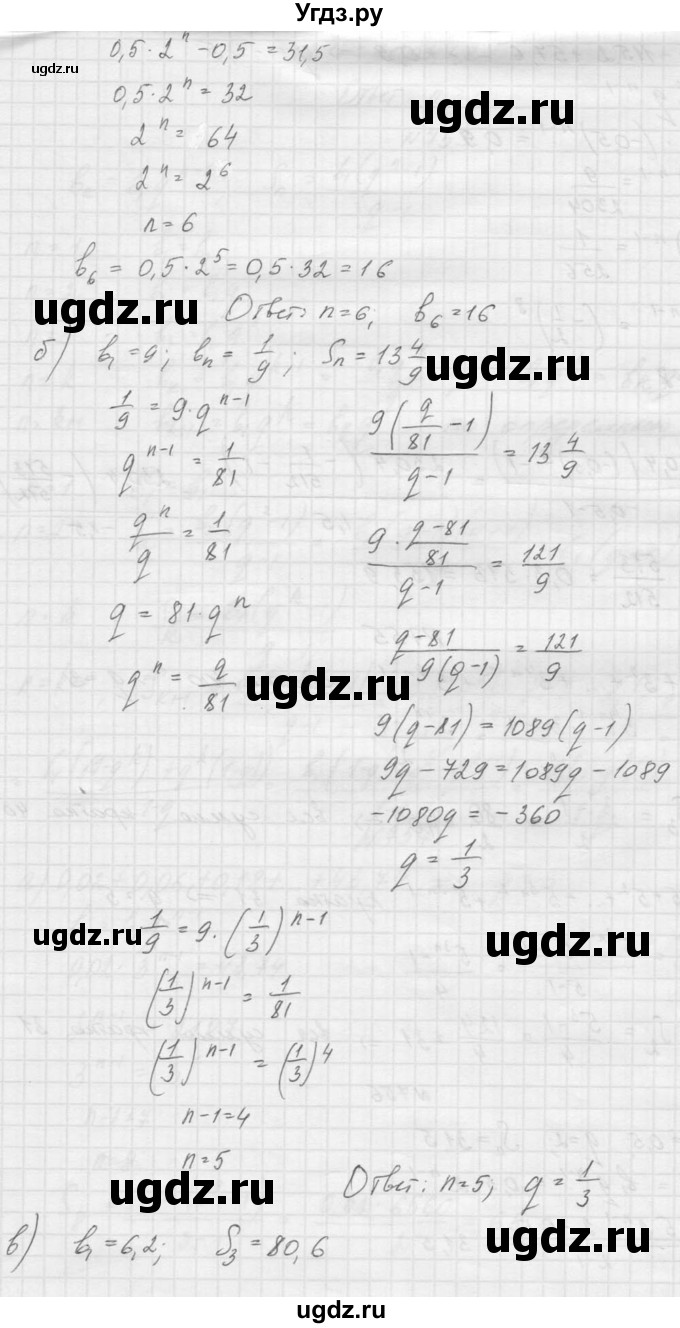 Угдз.ру
0,5·2^n − 0,5 = 31,5
ugdz.ru
0,5·2^n = 32
ugdz.ru
2^n = 64
2^n = 2^6
n = 6
b₆ = 0,5·2^5 = 0,5·32 = 16
ugdz.ru
Ответ: n=6; b₆=16
б) b₁ = 9; bₙ = 1/9; Sₙ = 13 4/9
ugdz.ru
1/9 = 9·q^(n−1)
q^(n−1) = 1/81
q^n/q = 1/81
q = 81·q^n
q^n = q/81
ugdz.ru
9(q/81 − 1)/(q−1) = 13 4/9
(9·(q−81)/81)/(q−1) = 121/9
(q−81)/(9(q−1)) = 121/9
9(q−81) = 1089(q−1)
9q − 729 = 1089q − 1089
−1080q = −360
q = 1/3
ugdz.ru
1/9 = 9·(1/3)^(n−1)
ugdz.ru
(1/3)^(n−1) = 1/81
(1/3)^(n−1) = (1/3)^4
n−1=4
n=5
ugdz.ru
Ответ: n=5, q = 1/3
в) b₁ = 6,2; S₃ = 80,6
ugdz.ru
ugdz.ru